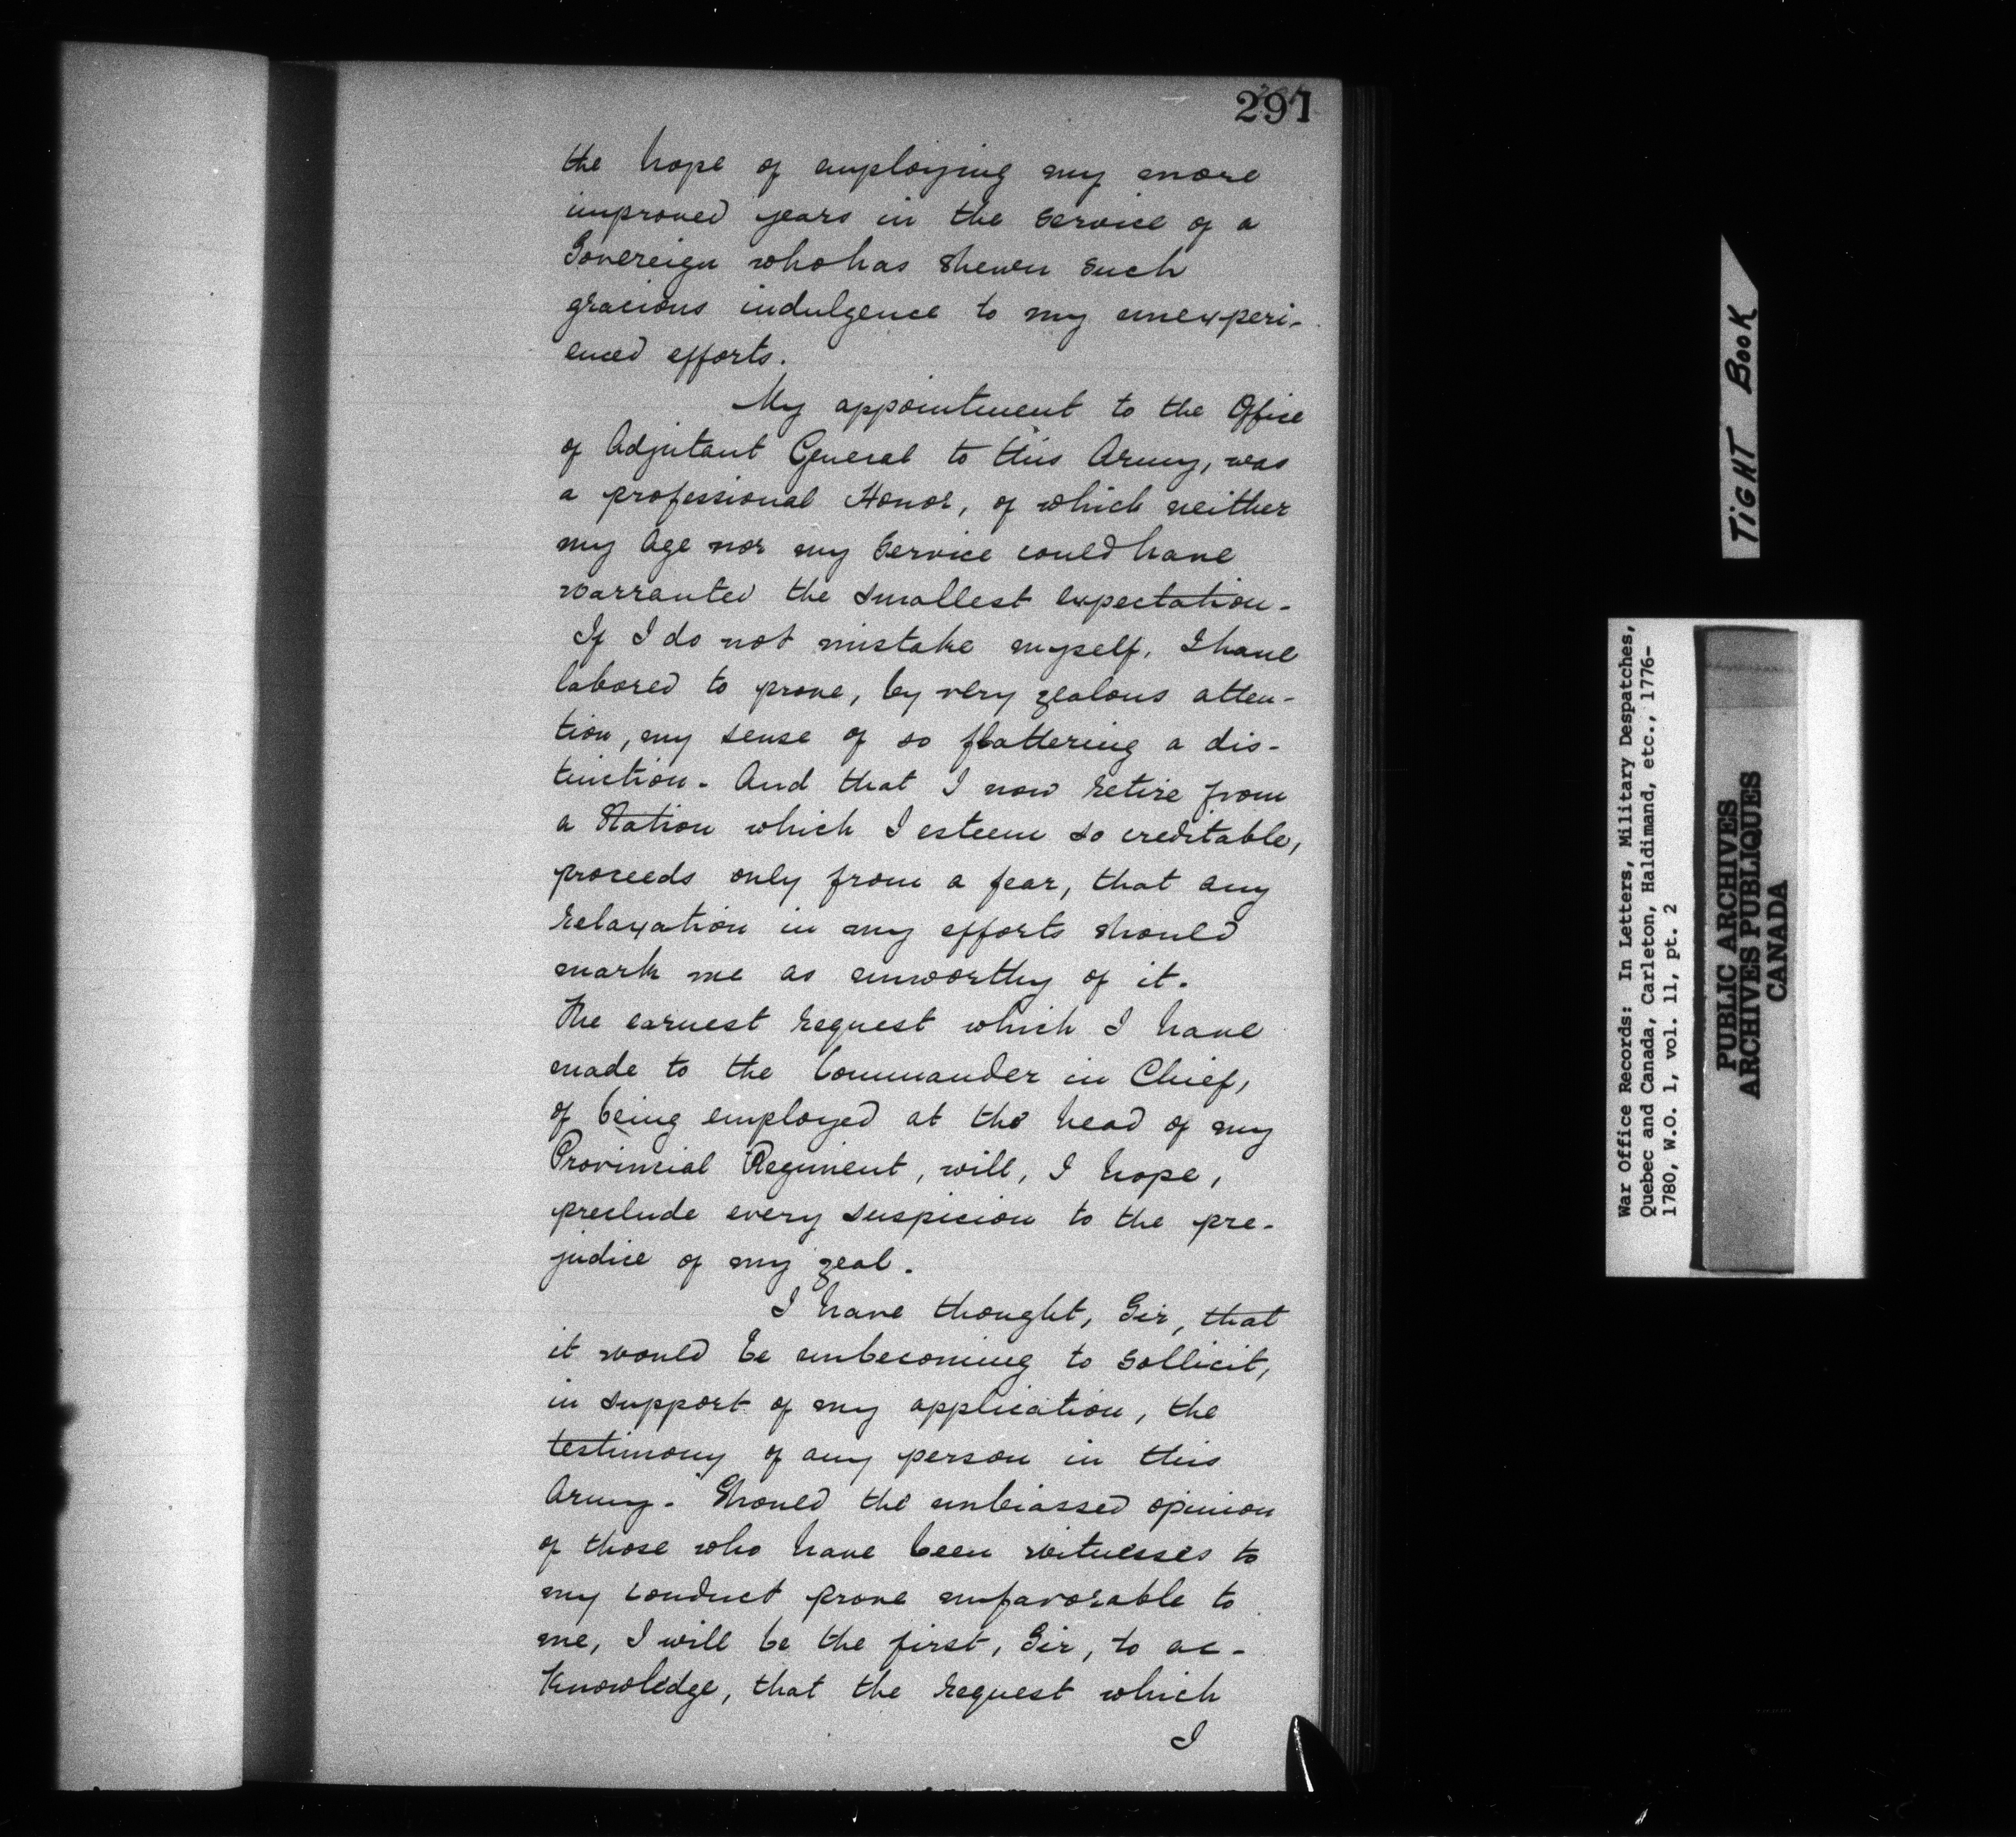 291
the hope of employing my more
improved years in the Service of a
Sovereign who has shewn such
gracious indulgence to my unexperi-
enced efforts.
My appointment to the Office
of Adjutant General to this Army, was
a professional Honor, of which neither
my Age nor my Service could have
warranted the smallest expectation.
If I do not mistake myself, I have
labored to prove, by very zealous atten-
tion, my sense of so flattering a dis-
tinction. And that I now retire from
a Station which I esteem so creditable,
proceeds only from a fear, that any
relaxation in my efforts should
mark me as unworthy of it.
The earnest request which I have
made to the Commander in Chief,
of being employed at the head of my
Provincial Regiment, will, I hope,
preclude every suspicion to the pre-
judice of my zeal.
I have thought, Sir, that
it would be unbecoming to sollicit,
in support of my application, the
testimony of any person in this
Army. Should the unbiassed opinion
of those who have been witnesses to
my conduct prove unfavorable to
me, I will be the first, Sir, to ac-
knowledge, that the request which
I
TIGHT BOOK
War Office Records: In Letters, Military Despatches,
Quebec and Canada, Carleton, Haldimand, etc., 1776-
1780, W.O. 1, vol. 11, pt. 2
PUBLIC ARCHIVES
ARCHIVES PUBLIQUES
CANADA